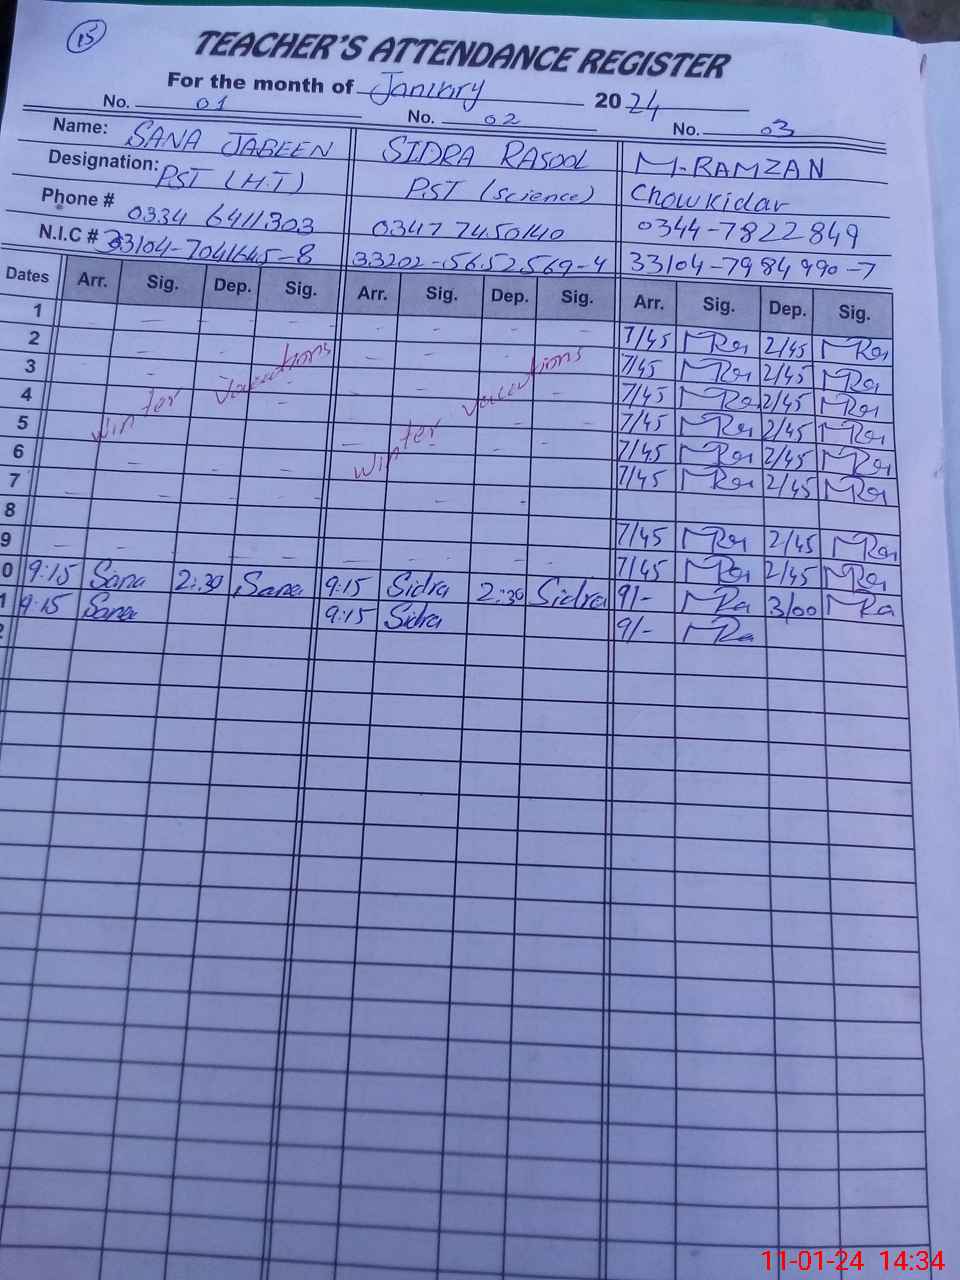 15
TEACHER'S ATTENDANCE REGISTER
For the month of January 2024
No. 01 No. 02 No. 03
Name: SANA JABEEN SIDRA RASOOL M.RAMZAN
Designation: PST (H.T) PST (Science) Chowkidar
Phone # 0334 6411303 0347 7450140 0344-7822849
N.I.C # 33104-7041645-8 33202-5652569-4 33104-7984990-7
Dates Arr. Sig. Dep. Sig. Arr. Sig. Dep. Sig. Arr. Sig. Dep. Sig.
1 - - - - - - - - 7/45 MRa 2/45 MRa
2 - - - - - - - - 7/45 MRa 2/45 MRa
3 7/45 MRa 2/45 MRa
4 7/45 MRa 2/45 MRa
Winter Vacations Winter Vacations
5 7/45 MRa 2/45 MRa
6 - - - - - - 7/45 MRa 2/45 MRa
7
8 7/45 MRa 2/45 MRa
9 - - - - - - 7/45 MRa 2/45 MRa
0 9:15 Sana 2:30 Sana 9:15 Sidra 2:30 Sidra 9/- MRa 3/00 MRa
1 9:15 Sana 9:15 Sidra 9/- MRa
2
11-01-24 14:34